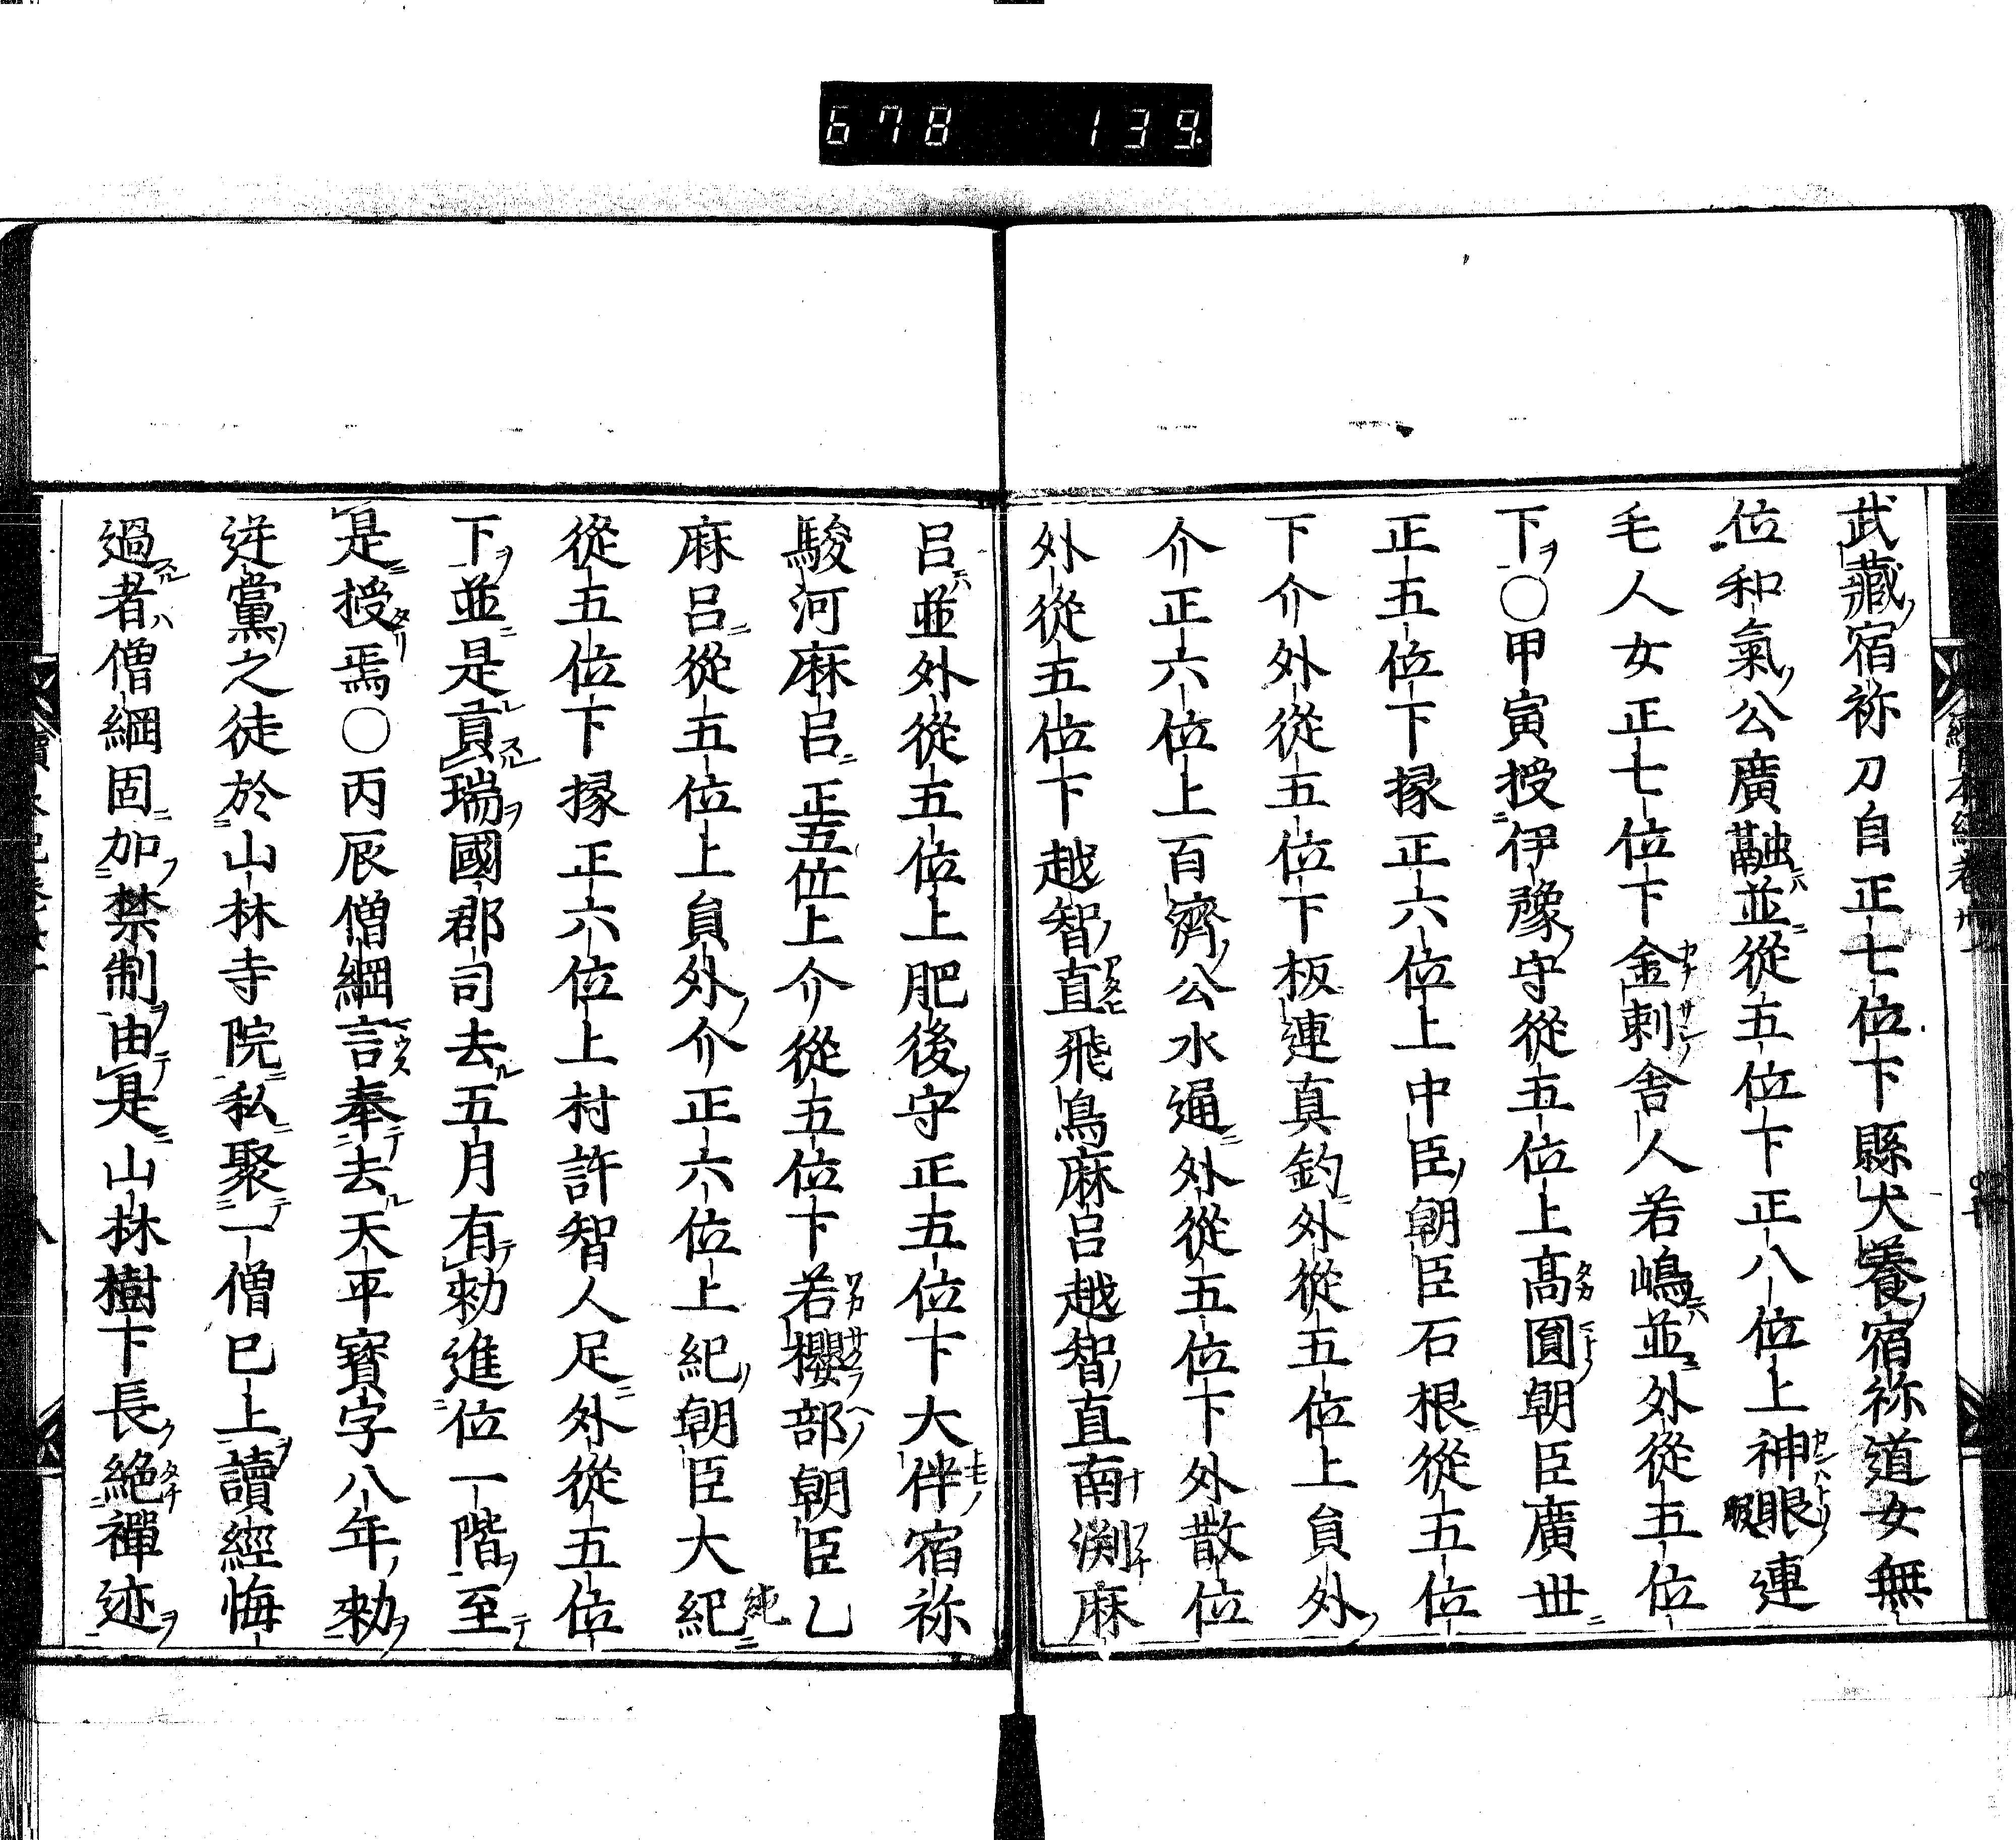 678 139
武藏宿祢刀自正七位下縣犬養宿祢道女無
位和氣公廣融並從五位下正八位上神眼連
毛人女正七位下金刺舍人若嶋並外從五位
下〇甲寅授伊豫守從五位上高圓朝臣廣世
正五位下掾正六位上中臣朝臣石根從五位
下介外從五位下板連真釣外從五位上員外
介正六位上百濟公水通外從五位下外散位
外從五位下越智直飛鳥麻呂越智直南渕麻
呂並外從五位上肥後守正五位下大伴宿祢
駿河麻呂正五位上介從五位下若櫻部朝臣乙
麻呂從五位上員外介正六位上紀朝臣大紀
從五位下掾正六位上村許智人足外從五位
下並是貢瑞國郡司去五月有勑進位一階至
是授焉〇丙辰僧綱言奉去天平寳字八年勑
逆黨之徒於山林寺院私聚一僧已上讀經悔
過者僧綱固加禁制由是山林樹下長絶禪迹